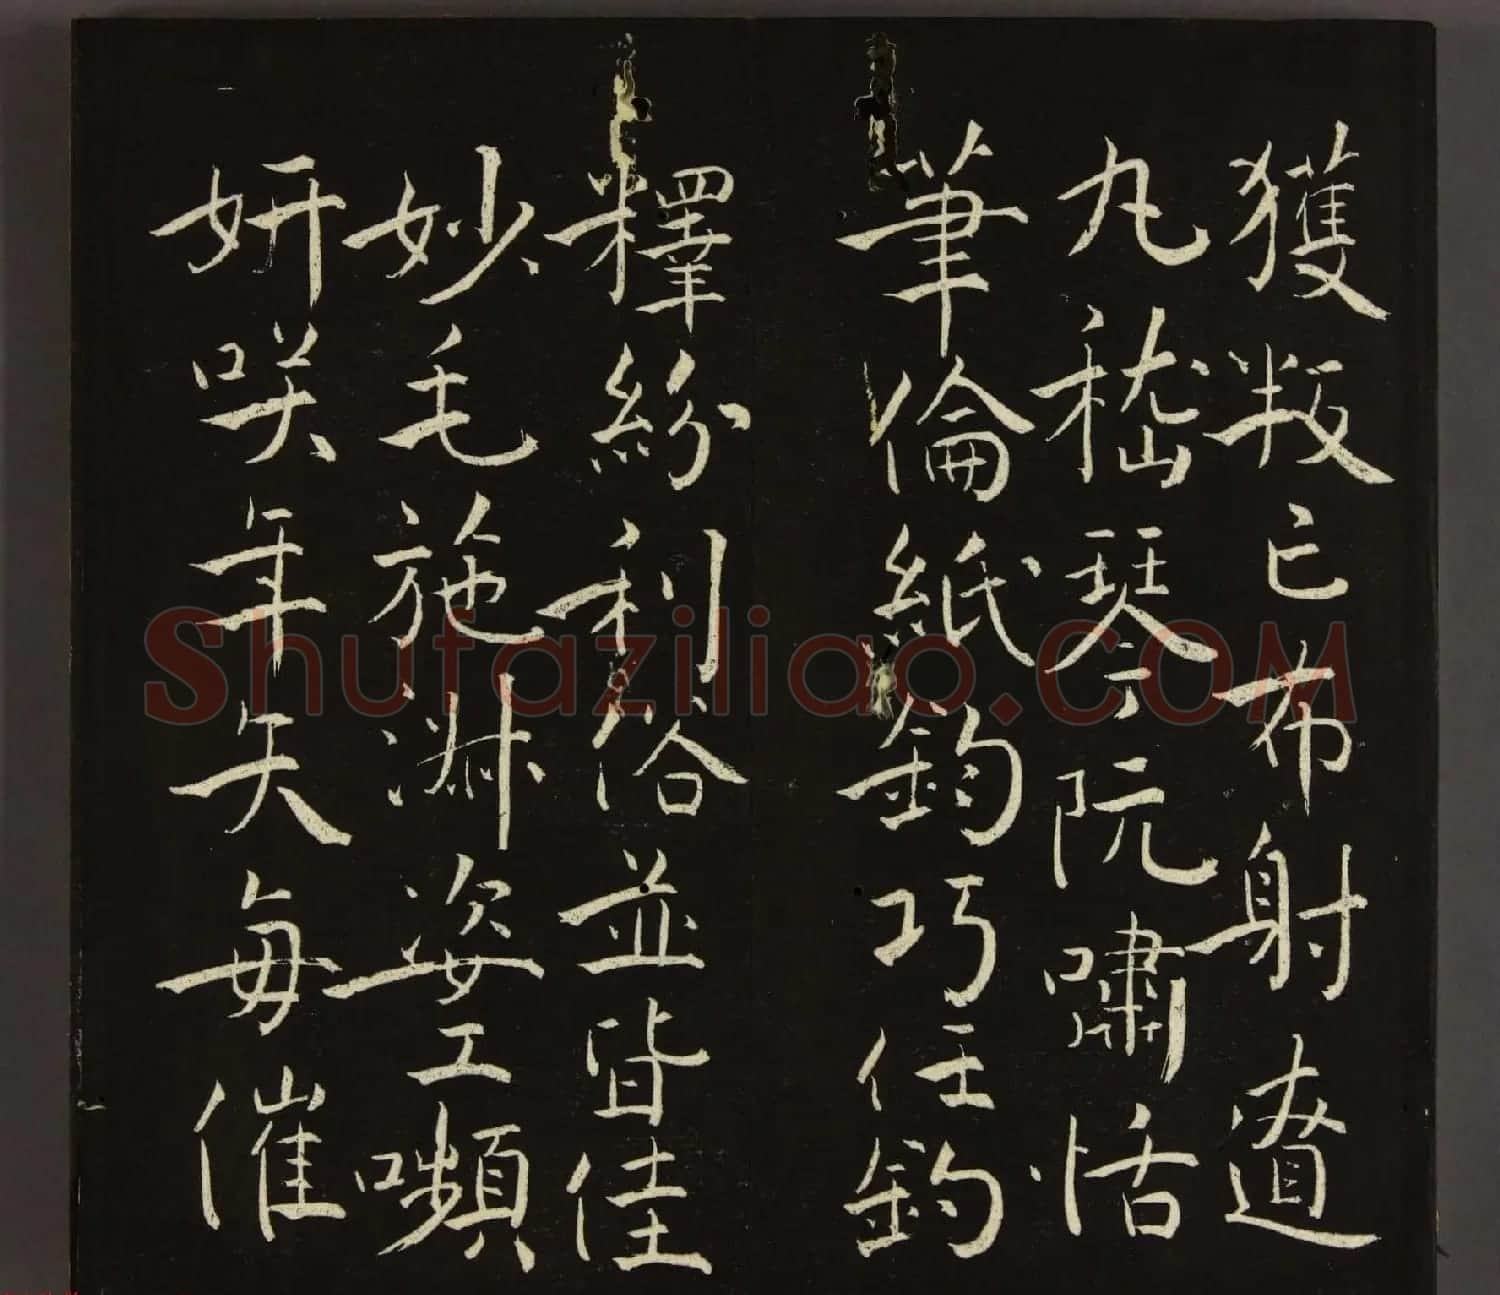 獲叛亡布射遼
丸嵇琴阮嘯恬
筆倫紙鈞巧任鈞
釋紛利俗並皆佳
妙毛施淋姿工嚬
妍咲年矢每催
Shufaziliao.COM